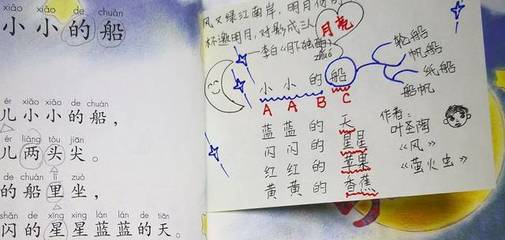 xiǎo xiǎo de chuán
小小的船
ér xiǎo xiǎo de chuán
儿小小的船，
ér liǎng tóu jiān
儿两头尖。
de chuán lǐ zuò
的船里坐
shǎn de xīng xing lán lán de tiān
闪的星星蓝蓝的天。
风又绿江南岸，明月何
杯邀明月，对影成三
月亮
小小的船
A A B C
蓝蓝的天
闪闪的星星
红红的苹果
黄黄的香蕉
轮船
帆船
纸船
船帆
作者：
叶圣陶
《风》
《萤火虫》